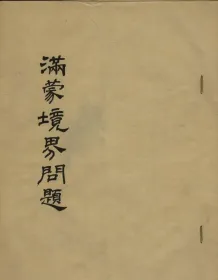 滿蒙境界問題